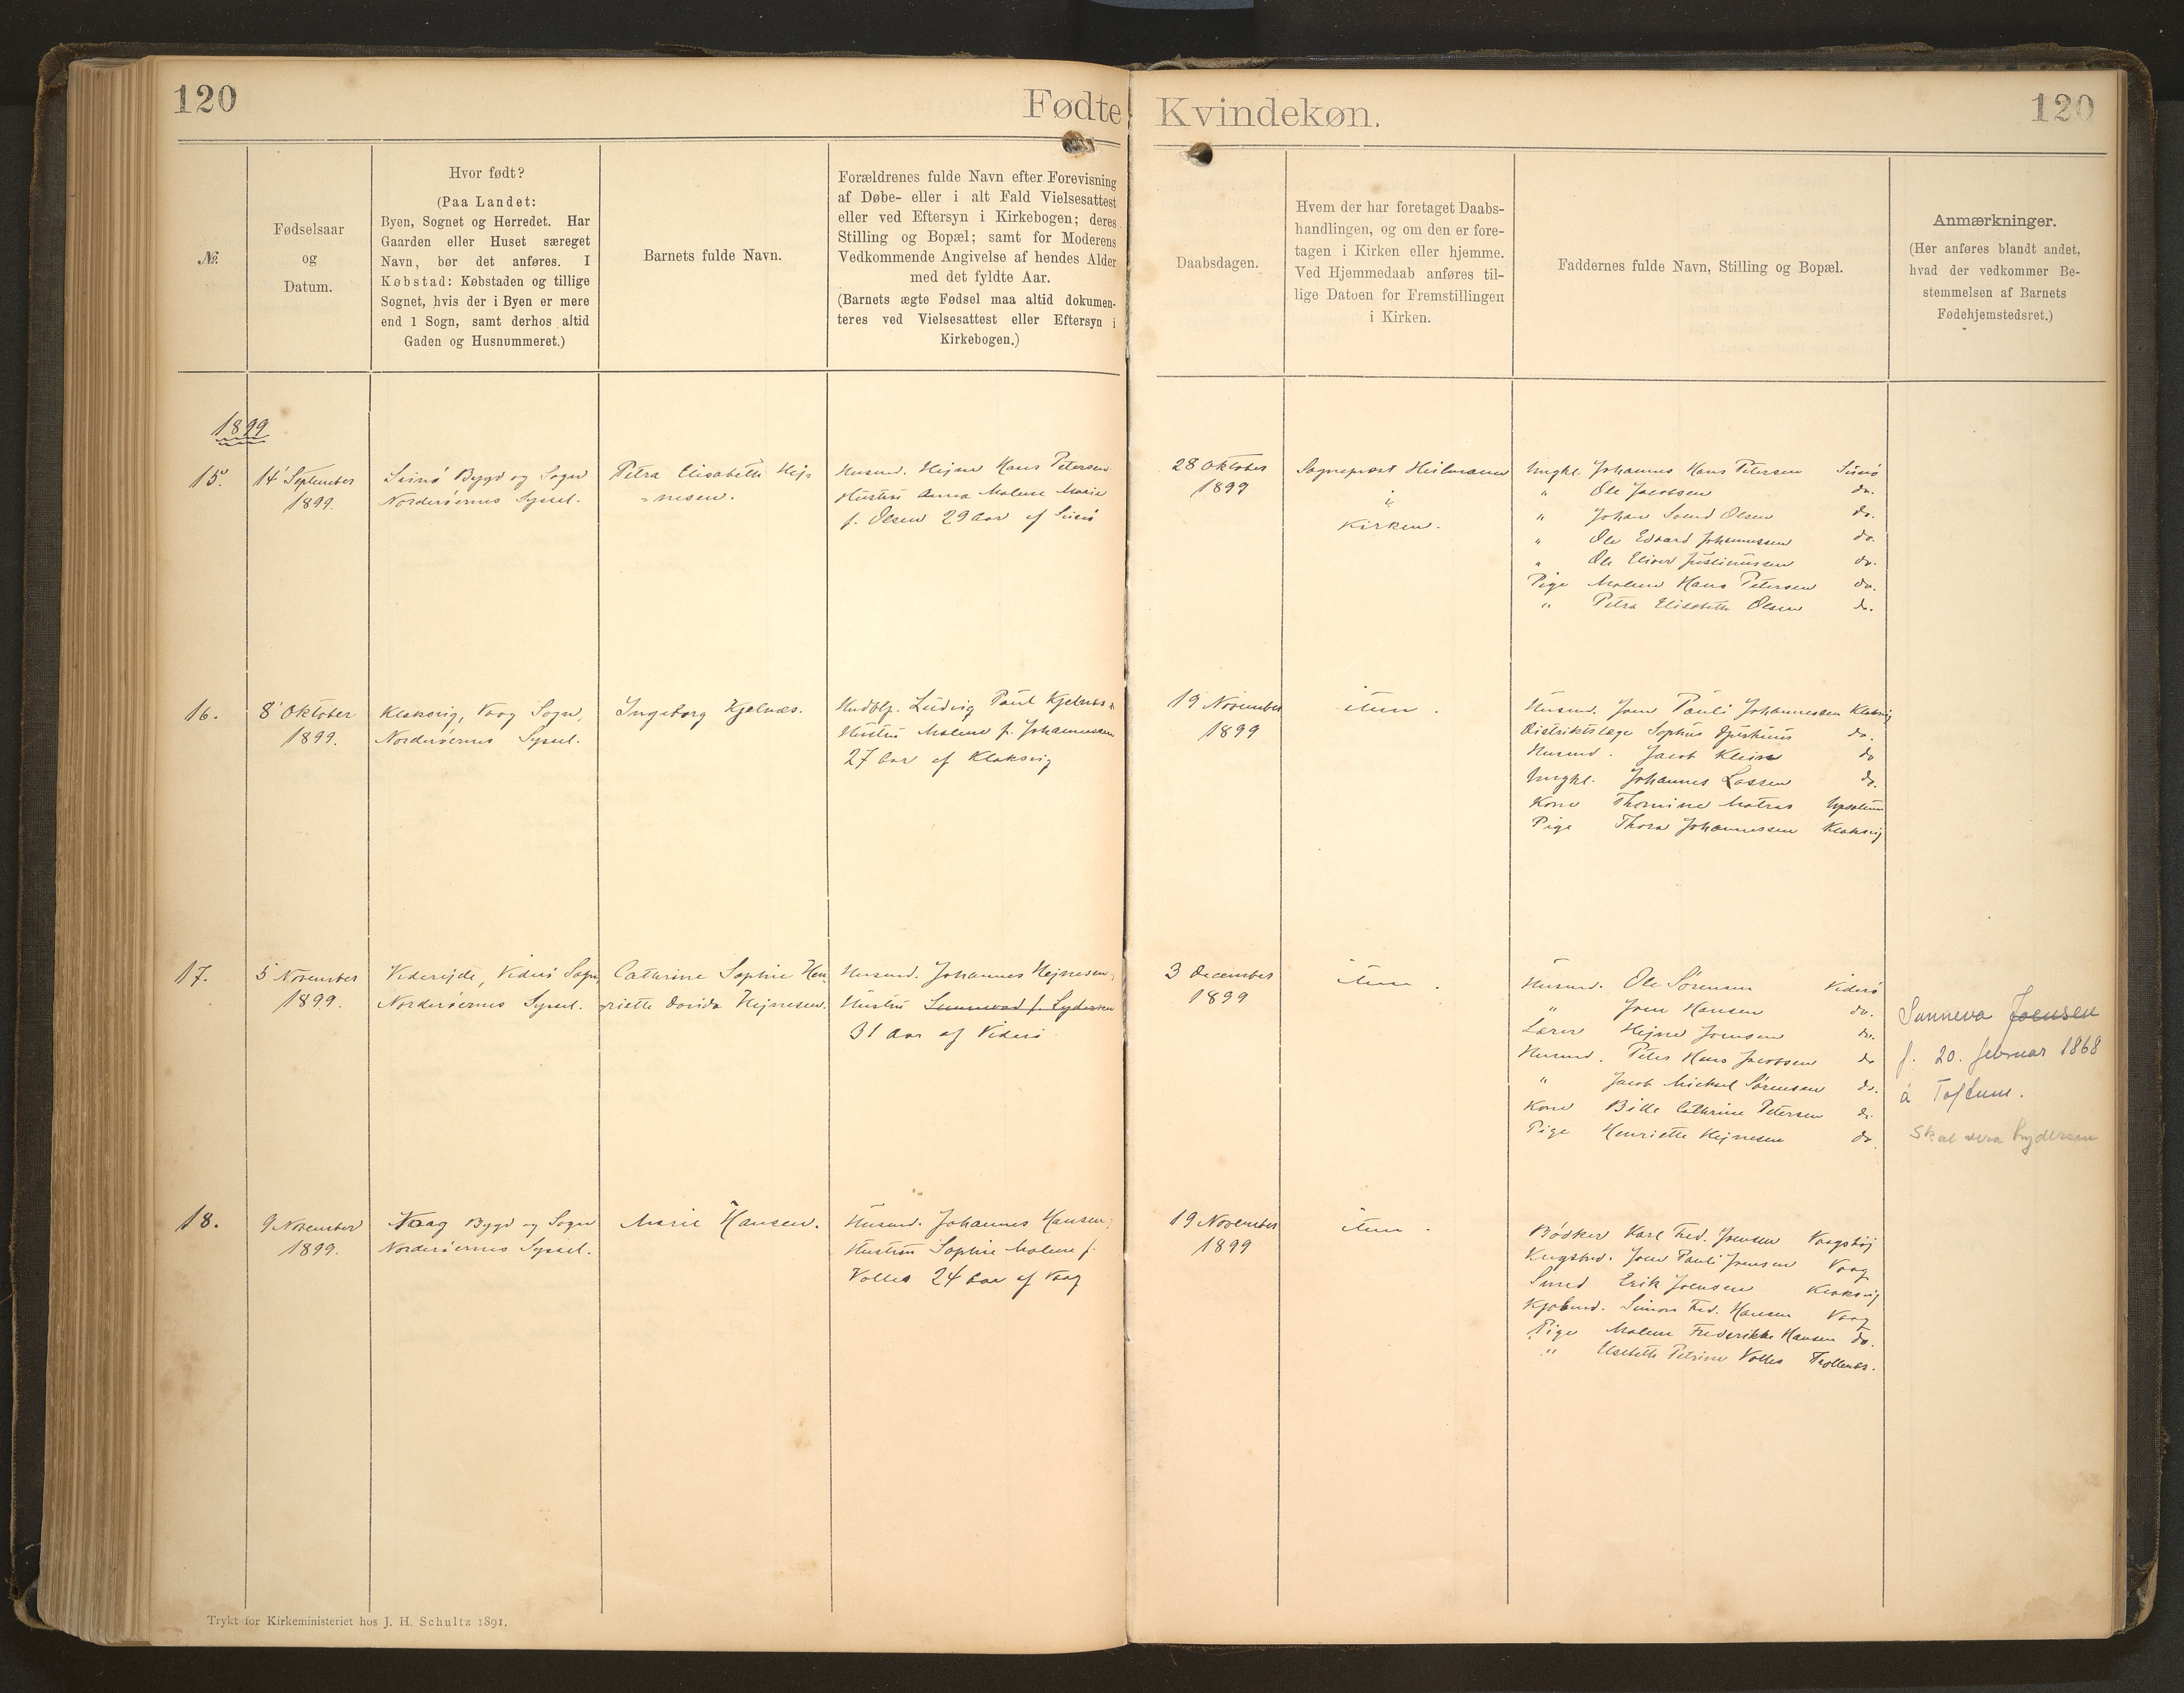 120
Fødte
Kvindekøn.
120
№
Fødselsaar
og
Datum.
Hvor født?
(Paa Landet:
Byen, Sognet og Herredet. Har
Gaarden eller Huset særeget
Navn, bør det anføres. I
Købstad: Købstaden og tillige
Sognet, hvis der i Byen er mere
end 1 Sogn, samt derhos altid
Gaden og Husnummeret.)
Barnets fulde Navn.
Forældrenes fulde Navn efter Forevisning
af Døbe- eller i alt Fald Vielsesattest
eller ved Eftersyn i Kirkebogen; deres
Stilling og Bopæl; samt for Moderens
Vedkommende Angivelse af hendes Alder
med det fyldte Aar.
(Barnets ægte Fødsel maa altid dokumen-
teres ved Vielsesattest eller Eftersyn i
Kirkebogen.)
Daabsdagen.
Hvem der har foretaget Daabs-
handlingen, og om den er fore-
tagen i Kirken eller hjemme.
Ved Hjemmedaab anføres til-
lige Datoen for Fremstillingen
i Kirken.
Faddernes fulde Navn, Stilling og Bopæl.
Anmærkninger.
(Her anføres blandt andet,
hvad der vedkommer Be-
stemmelsen af Barnets
Fødehjemstedsret.)
1899
15.
14 September
1899.
Svinø Bygd og Sogn
Norderøernes Syssel.
Petra Elisabeth Hej-
nesen.
Husmd. Hejne Hans Petersen
Hustru Anna Malene Marie
f. Olsen 29 Aar af Svinø
28 Oktober
1899
Sognepræst Heilmann
i
Kirken.
Ungkl. Johannes Hans Petersen Svinø
" Ole Jacobsen do.
" Johan Svend Olsen do.
" Ole Edvard Johannessen do.
" Ole Eliver Justinussen do.
Pige Malene Hans Petersen do.
" Petra Elisabeth Olsen do.
16.
8 Oktober
1899.
Klaksvig, Vaag Sogn,
Norderøernes Syssel.
Ingeborg Kjølnæs.
Ludvig Paul Kjølnæs
Hustru Malene f. Johannessen
27 Aar af Klaksvig
19 November
1899
item.
Husmd. Joen Pauli Johannessen Klaksvig
Distriktslæge Sophus do.
Husmd. Jacob Klein do
Ungkl. Johannes Lassen do.
Kone Thomine Matras
Pige Thora Johannessen Klaksvig
17.
5 November
1899.
Videreide, Viderø Sogn
Norderøernes Syssel.
Cathrine Sophie Hen-
riette Davida Hejnesen.
Husmd. Johannes Hejnesen,
Hustru Sunneva f. Lydersen
31 Aar af Viderø
3 December
1899
item.
Husmd. Ole Sørensen Viderø
" Joen Hansen do.
Lærer Hejne Joensen do.
Husmd. Peter Hans Jacobsen do
" Jacob Michael Sørensen do.
Kone Bille Cathrine Petersen do.
Pige Henriette Hejnesen do.
Sunneva Joensen
f. 20. februar 1868
á Toftum.
Skal vera Lydersen
18.
9 November
1899.
Vaag Bygd og Sogn
Norderøernes Syssel.
Marie Hansen.
Husmd. Johannes Hansen,
Hustru Sophie Malene f.
Volles 24 Aar af Vaag
19 November
1899
item.
Bødker Karl Fred. Joensen Vaagshøj
Joen Pauli Joensen Vaag
Smed Erik Joensen Klaksvig
Kjøbmd. Simon Fred. Hansen Vaag
Pige Malene Frederikke Hansen do.
" Elsebeth Petrine Volles Trøllenæs.
Trykt for Kirkeministeriet hos J. H. Schultz 1891.